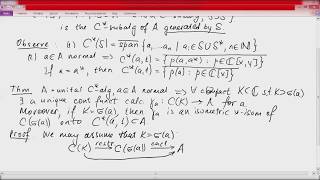 is the C*-subalg of A generated by S.
Observe: (1) C*(S) = span{a₁ ... aₙ | aᵢ ∈ S∪S*, n∈ℕ}
a∈A normal ⇒ C*(a,1) = {p(a,a*) : p∈ℂ[x,y]}
If a=a*, then C*(a,1) = {p(a) : p∈ℂ[x]}
Thm A = unital C*-alg, a∈A normal ⇒ ∀ compact K⊂ℂ s.t. K⊃σ(a)
∃ a unique cont. funct. calc. γₐ: C(K) → A for a.
Moreover, if K=σ(a), then γₐ is an isometric *-isom of
C(σ(a)) onto C*(a,1) ⊂ A
Proof We may assume that K=σ(a):
C(K) → C(σ(a)) → A